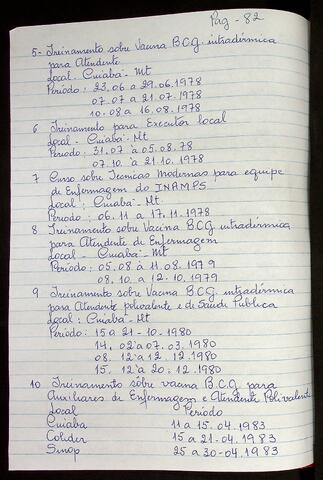 Pag - 82
5- Treinamento sobre Vacina B.C.G. intradérmica
para Atendente
Local - Cuiabá - Mt
Período: 23.06 a 29.06.1978
07.07 a 21.07.1978
10.08 a 16.08.1978
6 Treinamento para Executor local
Local - Cuiabá - Mt
Período: 31.07 à 05.08.78
07.10 à 21.10.1978
7 Curso sobre Tecnicas Modernas para equipe
de Enfermagem do INAMPS
Local: Cuiabá - Mt.
Período: 06.11 a 17.11.1978
8 Treinamento sobre Vacina B.C.G. intradérmica
para Atendente de Enfermagem
Local - Cuiabá - Mt
Período: 05.08 à 11.08.1979
08.10 a 12.10.1979
9 Treinamento sobre Vacina B.C.G. intradérmica
para Atendente polivalente e de Saúde Publica
Local: Cuiabá - Mt.
Período: 15 a 21-10.1980
14.02 a 07.03.1980
08.12 a 12.12.1980
15.12 a 20.12.1980
10 Treinamento sobre vacina B.C.G para
Auxiliares de Enfermagem e Atendente Polivalente
Local Período
Cuiaba 11 a 15.04.1983
Colider 15 a 21-04.1983
Sinop 25 a 30-04.1983